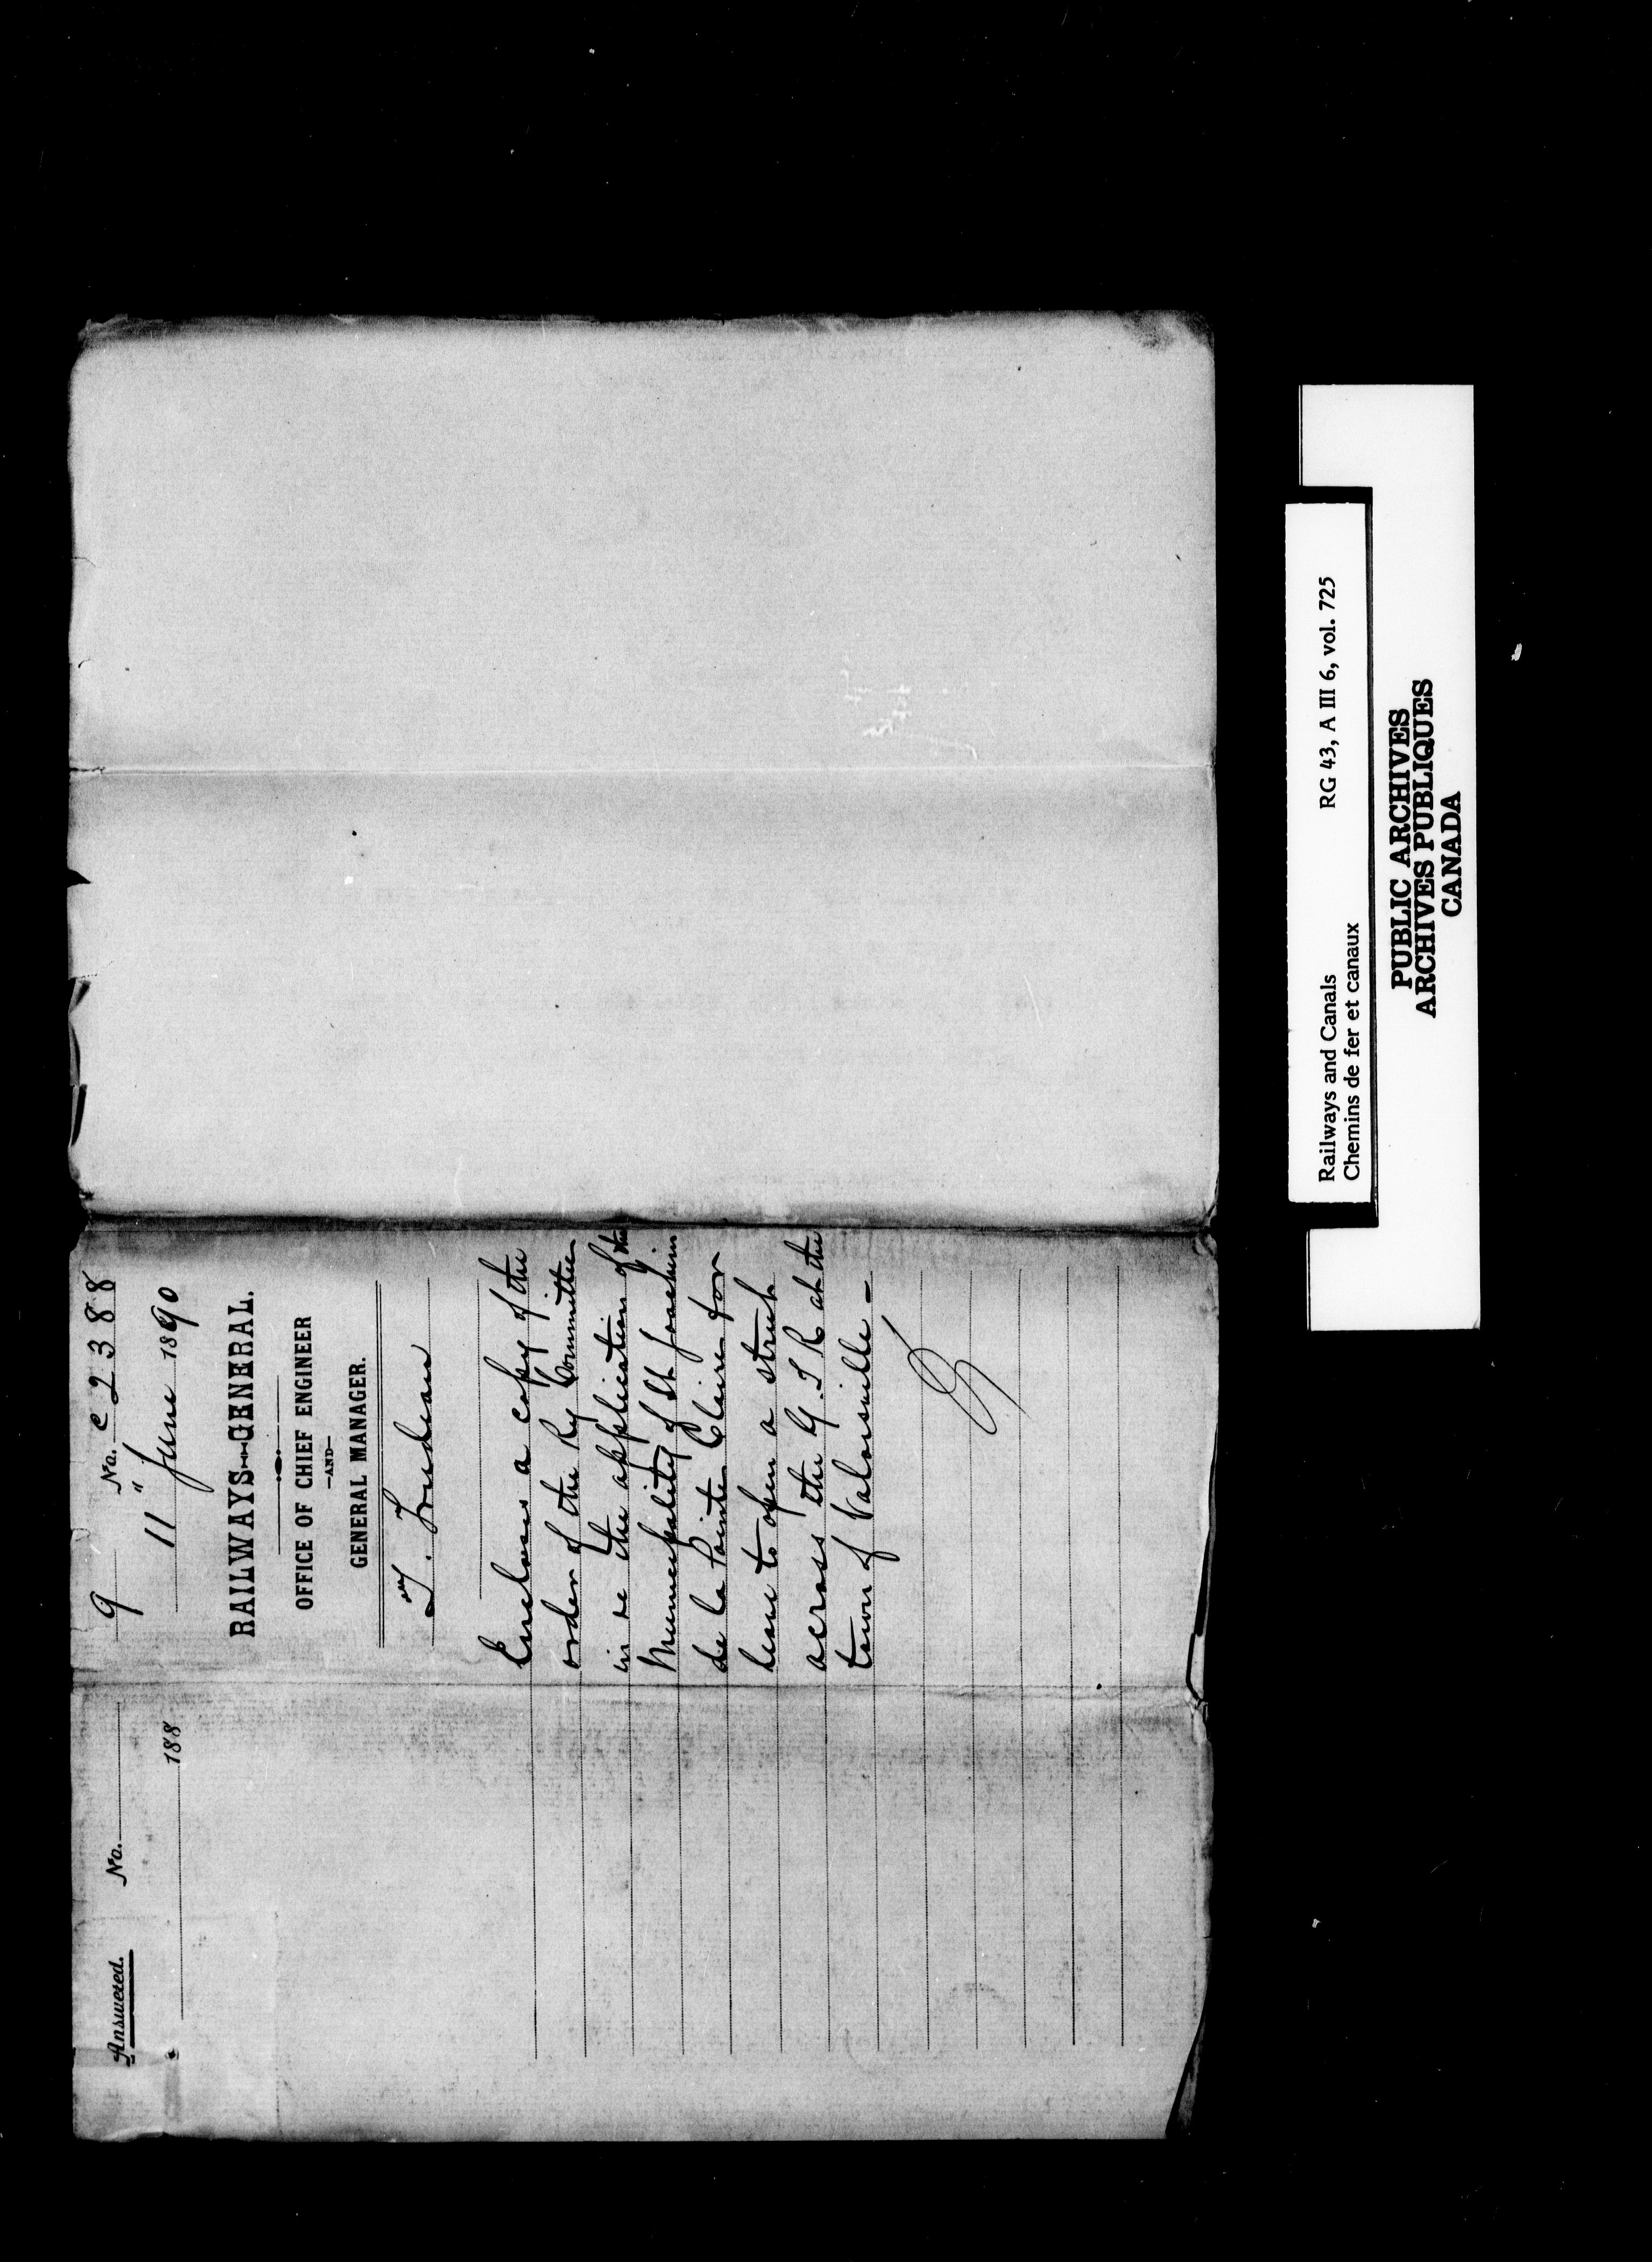 Answered. No.
188
9 No. c 2388
11" June 1890
RAILWAYS—GENERAL.
OFFICE OF CHIEF ENGINEER
—AND—
GENERAL MANAGER.
T. Trudeau
Encloses a copy of the
order of the Ry Committee
in re the application of the
Municipality of St Joachim
de la Pointe Claire for
leave to open a street
across the G.T.R at the
town of Valoisville –
Railways and Canals RG 43, A III 6, vol. 725
Chemins de fer et canaux
PUBLIC ARCHIVES
ARCHIVES PUBLIQUES
CANADA